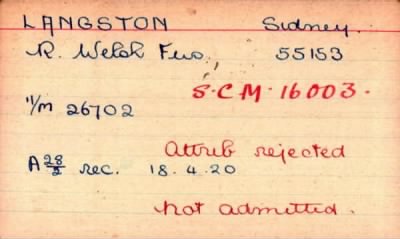 LANGSTON Sidney.
R. Welsh Fus. 55153
S.C.M. 16003.
1/M 26702
Attrib rejected
A 28/2 rec. 18.4.20
not admitted.